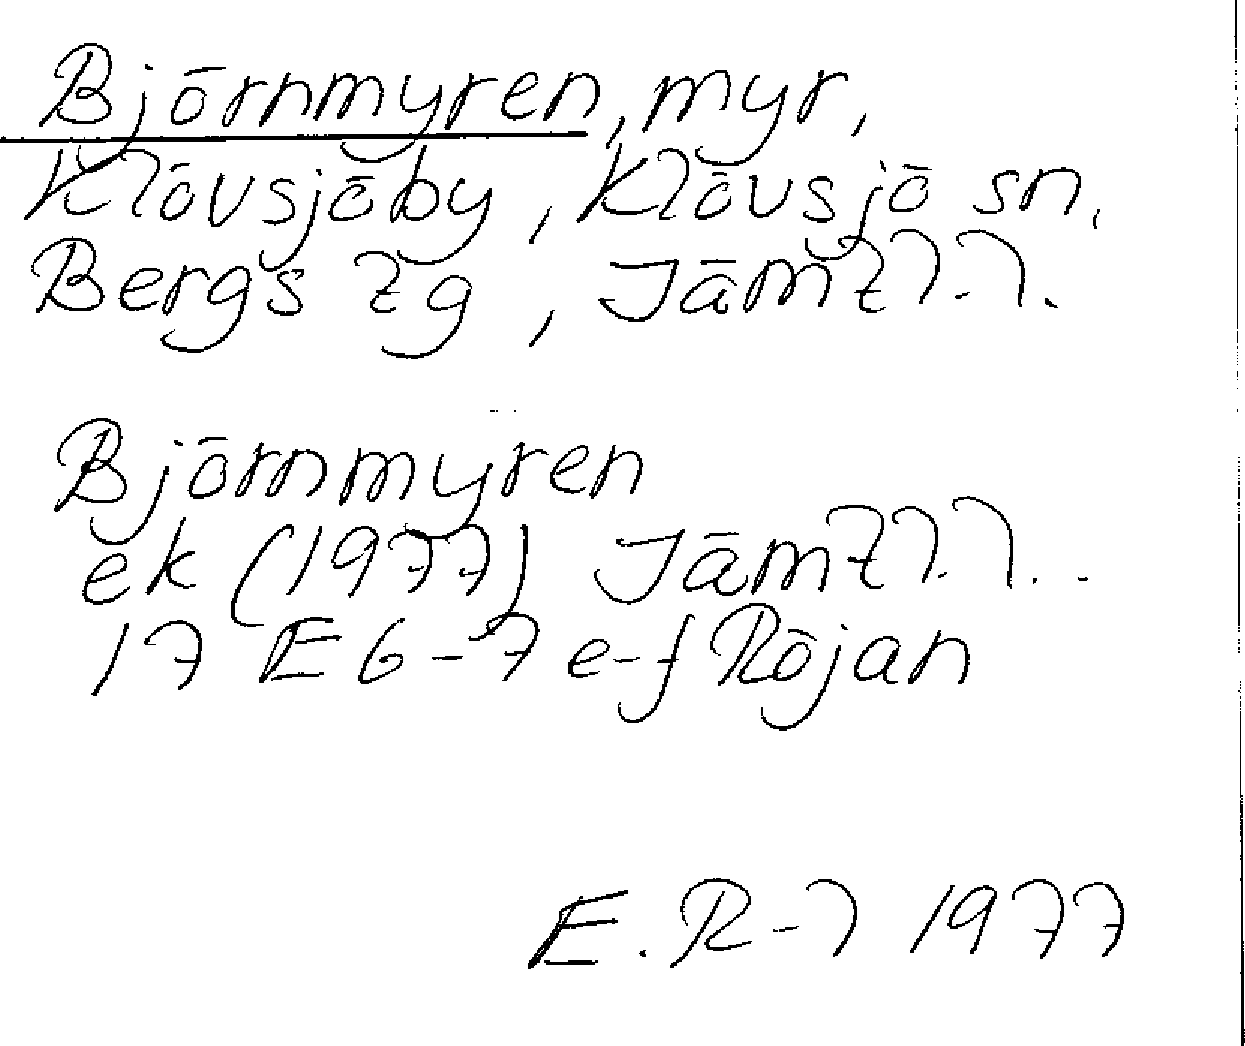 Björnmyren, myr,
Klövsjöby, Klövsjö sn,
Bergs tg, Jämtl.l.
Björnmyren
ek (1977) Jämtl.l..
17 E 6-7 e-f Röjan
E. R-l 1977